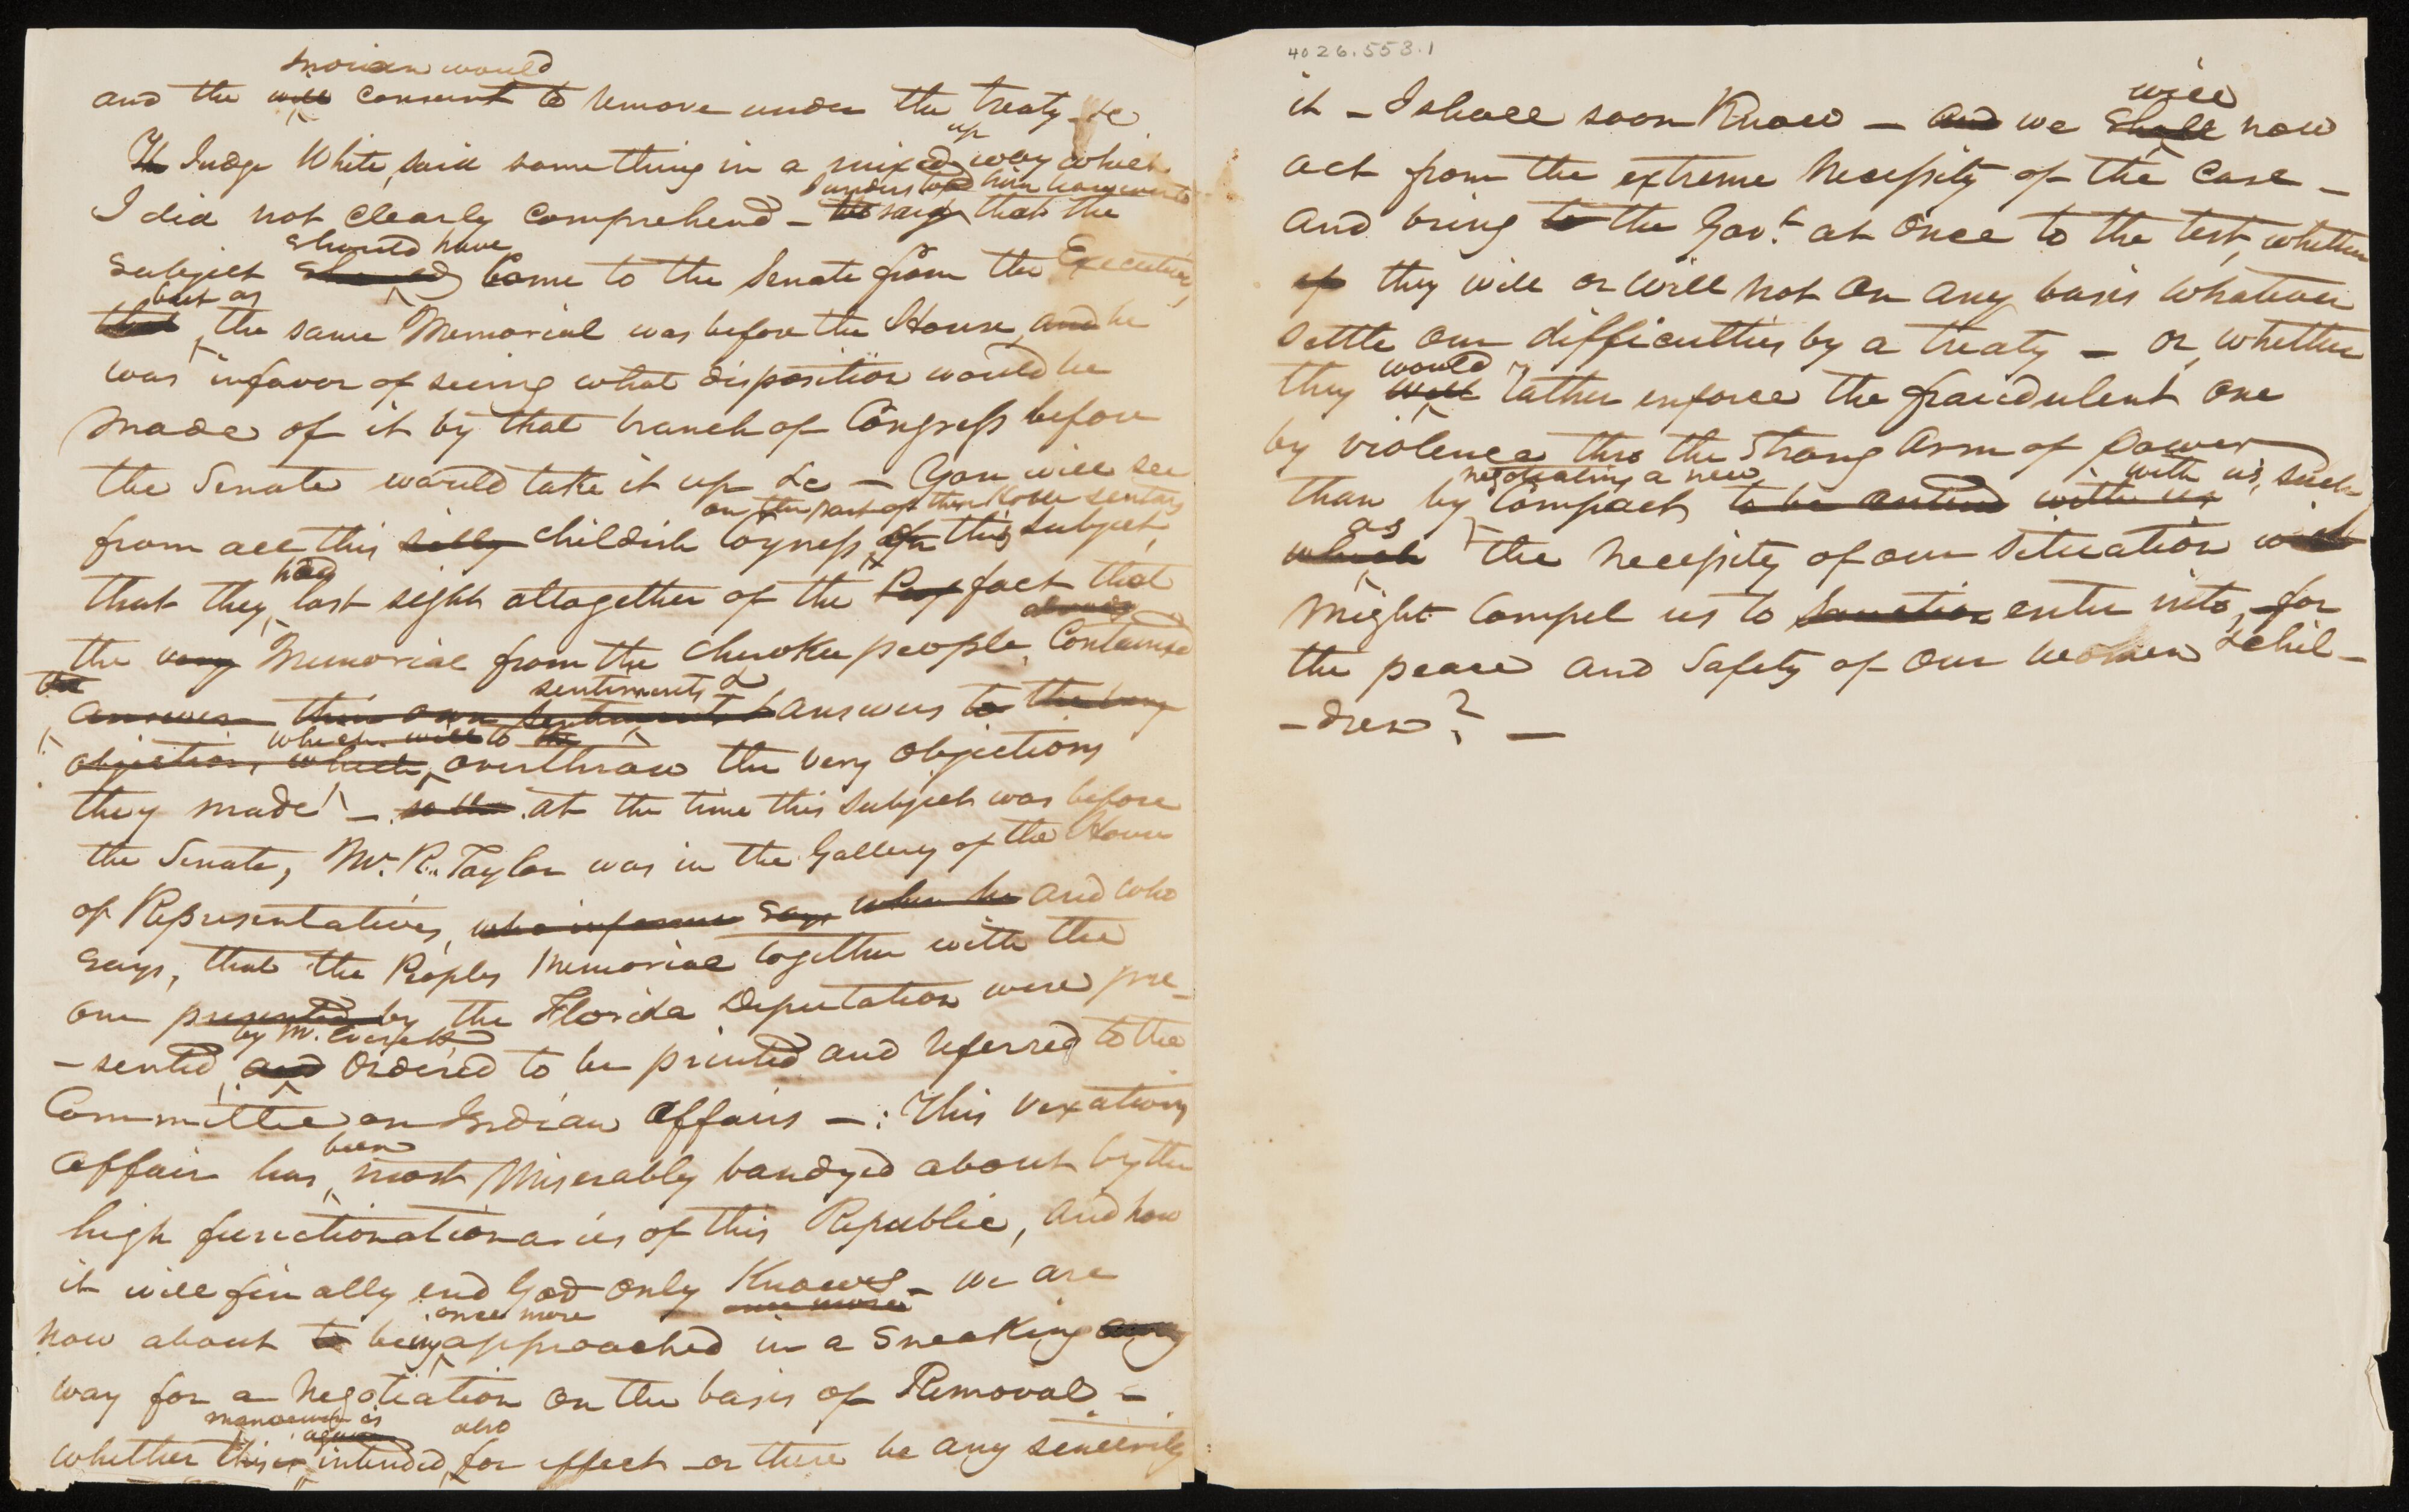 and the ~~will~~ would consent to remove under the treaty &c
~~Th~~ Judge White, said something in a mixed up way which
I did not clearly comprehend – ~~he said~~ I understood him however that the
subject ~~showed~~ should have come to the Senate from the Executive,
~~that~~ but as the same Memorial was before the House, ~~and~~ he
was in favor of seeing what disposition would be
made of it by that branch of Congress before
the Senate would take it up &c – You will see
from all this ~~silly~~ childish coyness on the part of these ~~on~~ this subject,
that they had lost sight altogether of the fact that
the ~~very~~ Memorial from the Cherokee people, already contained
~~the~~
~~answer their own sentiment &~~ sentiments & answers ~~to the very~~
~~objection, which~~ ~~which will~~ to ~~the~~ overthrow the very objections
they made! – at the time this subject was before
the Senate, Mr. R. Taylor was in the Gallery of the House
of Representatives, ~~who informs says when he~~ and who
says, that the Peoples Memorial together with the
one ~~presented~~ by the Florida Deputation were pre-
-sented, ~~and~~ by Mr. Everett ordered to be printed and referred to the
Committee on Indian Affairs –: This vexatious
affair has been most Miserably bandyed about by the
high functionationaries of this Republic, and how
it will finally end God only Knows – we are
now about ~~to~~ being once more ~~once more~~ approached in a sneaking
way for a Negotiation on the basis of Removal. –
whether this manoeuvre is ~~again~~ intended also for effect – or there be any sincerity
4026.553.1
it – I shall soon Know – ~~and~~ we ~~shall~~ will now
act from the extreme Necessity of the case –
and bring ~~to~~ the Gov.t at once to the test, whether
~~if~~ they will or will not on any basis whatever
settle our difficulties by a treaty – or, whether
they ~~will~~ would rather enforce the fraudulent one
by violence thro the strong arm of power
than by negotiating a new compact, ~~to be entered with us~~ with us, such
~~which~~ as the Necessity of our situation
might compel us to ~~sanction~~ enter into, for
the peace and Safety of our women & chil-
-dren? –